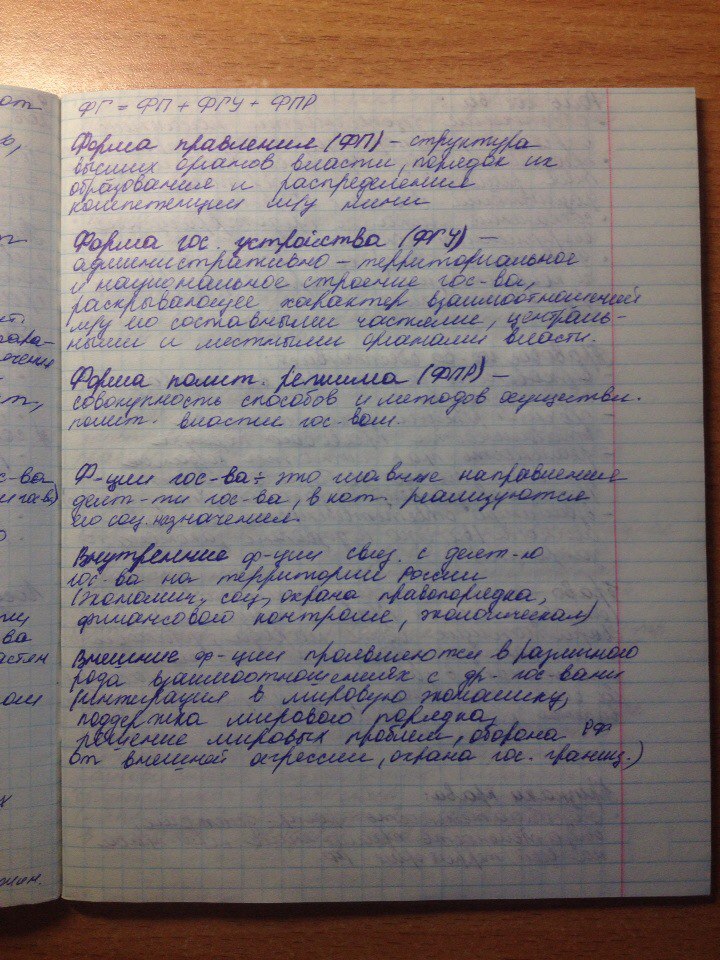 ФГ = ФП + ФГУ + ФПР
Форма правления (ФП) – структура
высших органов власти, порядок их
образования и распределения
компетенции м/у ними
Форма гос. устройства (ФГУ) –
административно – территориальное
и национальное строение гос-ва,
раскрывающее характер взаимоотношений
м/у его составными частями, централь-
ными и местными органами власти.
Форма полит. режима (ФПР) –
совокупность способов и методов осуществл.
полит. власти гос-вом.
Ф-ции гос-ва – это главные направления
деят-ти гос-ва, в кот. реализуются
его соц. назначения.
Внутренние ф-ции связ. с деят-ю
гос-ва на территории России
(экономич., соц, охрана правопорядка,
финансового контроля, экологическая)
Внешние ф-ции проявляются в различного
рода взаимоотношениях с др. гос-вами
(интиграция в мировую экономику,
поддержка мирового порядка,
решение мировых проблем, оборона РФ
от внешней агрессии, охрана гос. границ.)